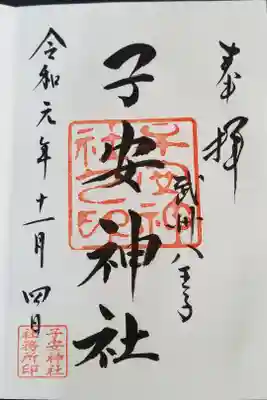 奉拝
武州八王子
子安神社
子安神社之印
令和元年十一月四日
子安神社
社務所印